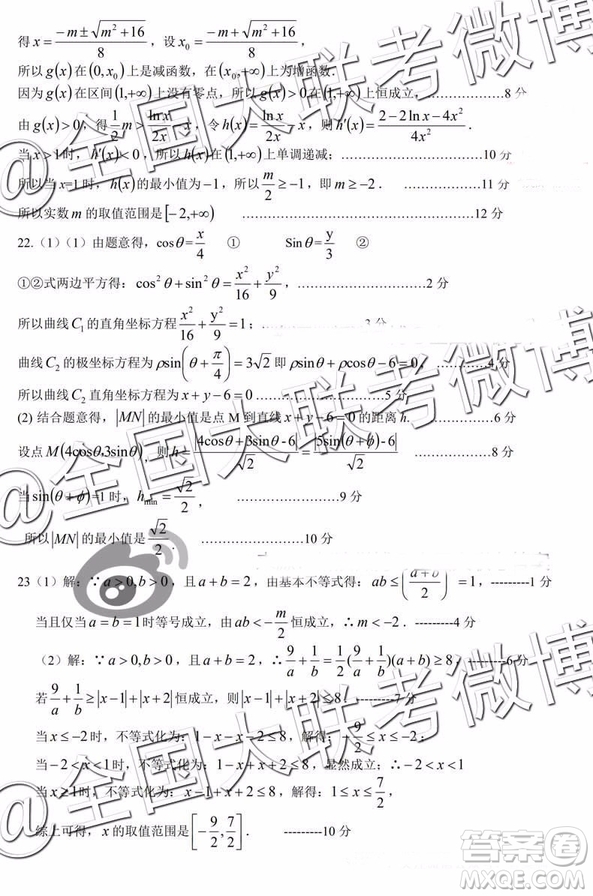 得 x = (-m±√(m²+16))/8，设 x₀ = (-m+√(m²+16))/8，
所以 g(x) 在 (0,x₀) 上是减函数，在 (x₀,+∞) 上为增函数.
因为 g(x) 在区间 (1,+∞) 上没有零点，所以 g(x)>0 在 (1,+∞) 上恒成立，…………………8 分
由 g(x)>0，得 1/2 m > lnx/2x - x，令 h(x) = lnx/2x - x，则 h′(x) = (2-2lnx-4x²)/4x².
当 x>1 时，h′(x)<0，所以 h(x) 在 (1,+∞) 上单调递减；…………………………10 分
所以当 x=1 时，h(x) 的最小值为 -1，所以 m/2 ≥ -1，即 m ≥ -2. ………………11 分
所以实数 m 的取值范围是 [-2,+∞) …………………………12 分
22.（1）（1）由题意得，cosθ= x/4 ① Sinθ= y/3 ②
①②式两边平方得：cos²θ+sin²θ = x²/16 + y²/9，…………………2 分
所以曲线 C₁ 的直角坐标方程 x²/16 + y²/9 = 1；…………………3 分
曲线 C₂ 的极坐标方程为 ρsin(θ+π/4) = 3√2 即 ρsinθ+ρcosθ-6=0，…………4 分
所以曲线 C₂ 直角坐标方程为 x+y-6=0 …………………5 分
(2) 结合题意得，|MN| 的最小值是点 M 到直线 x+y-6=0 的距离 h. ……………6 分
设点 M(4cosθ,3sinθ)，则 h = |4cosθ+3sinθ-6|/√2 = |5sin(θ+ϕ)-6|/√2 ……………8 分
当 sin(θ+ϕ)=1 时，h_min = √2/2，………………9 分
所以 |MN| 的最小值是 √2/2. ………………10 分
23（1）解：∵a>0,b>0，且 a+b=2，由基本不等式得：ab≤((a+b)/2)² =1，---------1 分
当且仅当 a=b=1 时等号成立，由 ab<-m/2 恒成立，∴m<-2. ---------4 分
（2）解：∵a>0,b>0，且 a+b=2，∴9/a+1/b=1/2(9/a+1/b)(a+b)≥8，---------6分
若 9/a+1/b≥|x-1|+|x+2| 恒成立，则 |x-1|+|x+2|≤8，---------7分
当 x≤-2 时，不等式化为：1-x-x-2≤8，解得：-9/2≤x≤-2
当 -2<x<1 时，不等式化为：1-x+x+2≤8，显然成立；∴-2<x<1
当 x≥1 时，不等式化为：x-1+x+2≤8，解得：1≤x≤7/2，
综上可得，x 的取值范围是 [-9/2,7/2]. ---------10 分
@全国大联考微博
答案圈
MXQE.COM